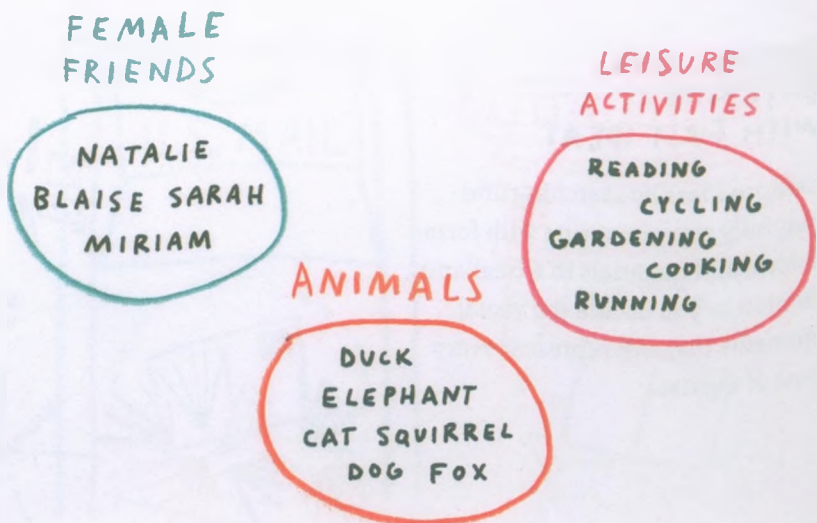 FEMALE
FRIENDS
NATALIE
BLAISE SARAH
MIRIAM
LEISURE
ACTIVITIES
READING
CYCLING
GARDENING
COOKING
RUNNING
ANIMALS
DUCK
ELEPHANT
CAT SQUIRREL
DOG FOX